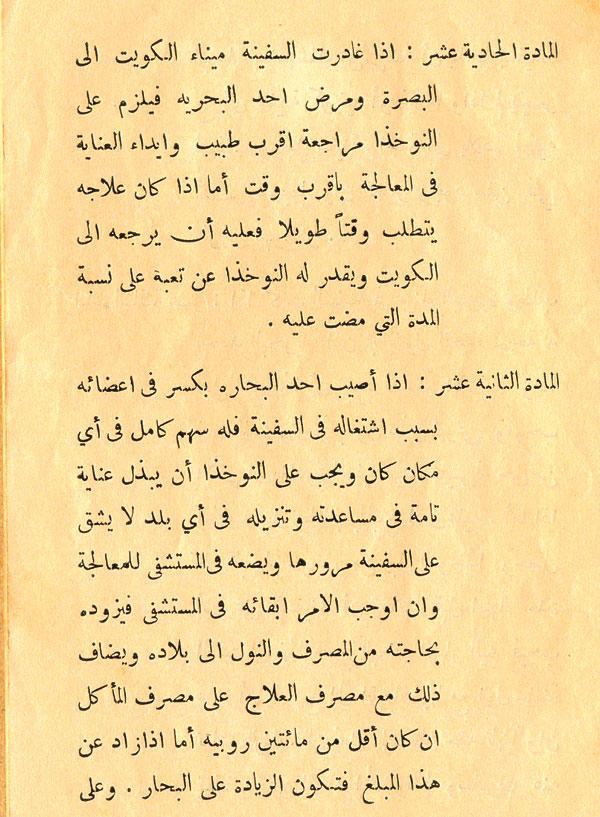 المادة الحادية عشر : اذا غادرت السفينة ميناء الكويت الى
البصرة ومرض احد البحريه فيلزم على
النوخذا مراجعة اقرب طبيب وابداء العناية
فى المعالجة باقرب وقت أما اذا كان علاجه
يتطلب وقتاً طويلا فعليه أن يرجعه الى
الكويت ويقدر له النوخذا عن تعبة على نسبة
المدة التي مضت عليه .
المادة الثانية عشر : اذا أصيب احد البحاره بكسر فى اعضائه
بسبب اشتغاله فى السفينة فله سهم كامل فى أي
مكان كان ويجب على النوخذا أن يبذل عناية
تامة فى مساعدته وتنزيله فى أي بلد لا يشق
على السفينة مرورها ويضعه فى المستشفى للمعالجة
وان اوجب الامر ابقائه فى المستشفى فيزوده
بحاجته من المصرف والنول الى بلاده ويضاف
ذلك مع مصرف العلاج على مصرف المأكل
ان كان أقل من مائتين روبيه أما اذازاد عن
هذا المبلغ فتكون الزيادة على البحار . وعلى